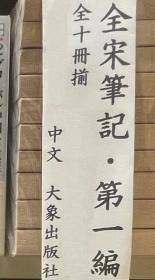 全宋筆記·第一編
全十冊揃
中文 大象出版社